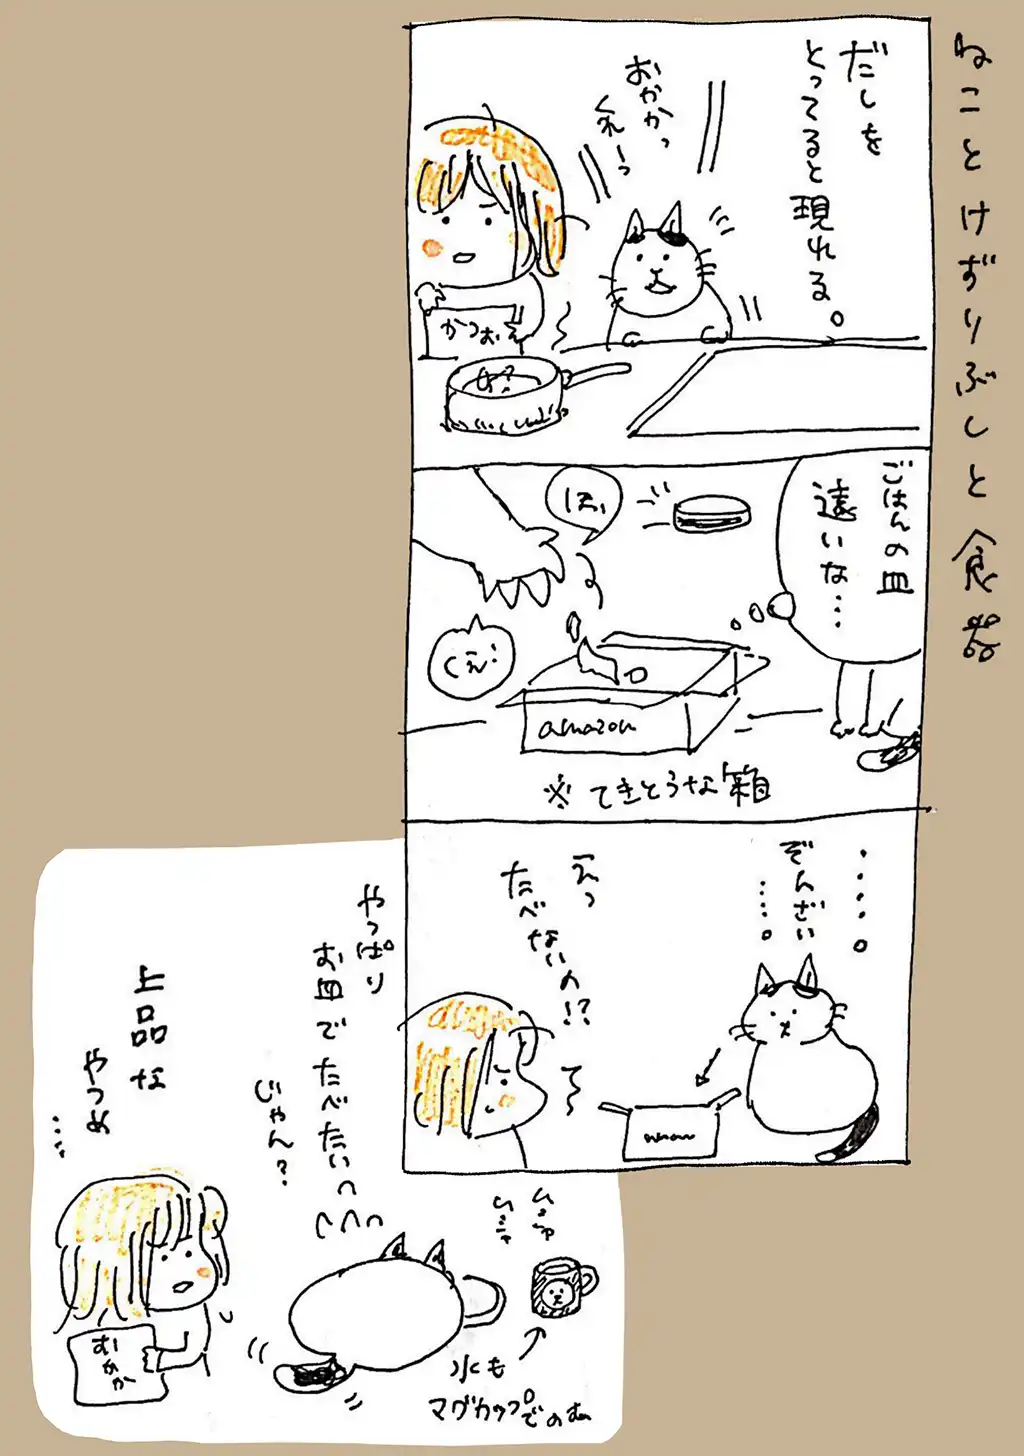 ねことけずりぶしと食器
だしを
とってると現れる。
おかかっ
くれーっ
かつお
ごはんの皿
遠いな…
ほい
くえ!
amazon
※てきとうな箱
……。
ぞんざい
……。
えっ
たべないの!?
やっぱり
お皿でたべたい
じゃん?
上品な
やつめ
……
おかか
ムシャ
ムシャ
水も
マグカップでのむ